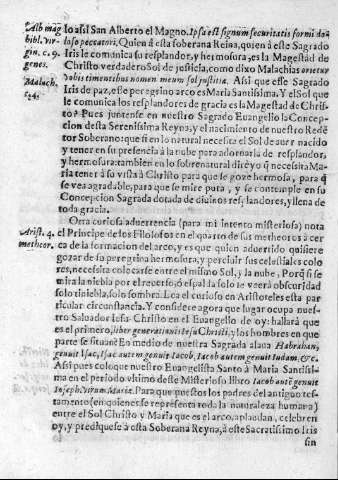 Alb mag
bibl. Vir-
gin. c. 9.
genes.
Malach.
c. 4.
lo assi San Alberto el Magno. Ipsa est signum securitatis formidan
loso peccatori. Quien á esta soberana Reina, quien á este Sagrado
Iris le comunica su resplandor, y hermosura, es la Magestad de
Christo verdadero Sol de justicia, como dixo Malachias orietur
vobis timentibus nomen meum sol justitiæ. Assi que esse Sagrado
Iris de paz, esse peregrino arco es Maria Santissima. Y el Sol que
le comunica los resplandores de gracia es la Magestad de Chris-
to? Pues juntense en nuestro Sagrado Euangelio la Concep-
cion desta Serenissima Reyna, y el nacimiento de nuestro Redẽ-
tor Soberano: que si en lo natural necesita el Sol de aver nacido
y tener en su presencia á la nube para adornarla de resplandor,
y hermosura: tambien en lo sobrenatural diré yo q̃ necessita Ma-
ria tener á su vista á Christo para que se goze hermosa, para q̃
se vea agradable, para que se mire pura, y se contemple en su
Concepcion Sagrada dotada de divinos resplandores, y llena de
toda gracia.
Arist. 4.
metheor.
Otra curiosa aduerrencia (para mi intento misteriosa) nota
el Principe de los Filosofos en el quarto de sus metheoros á cer-
ca de la formacion del arco, y es que quien aduertido quisiere
gozar de su peregrina hermosura, y percibir sus celestiales colo
res, necesita colocarse entre el mismo Sol, y la nube, Porq̃ si se
mira la niebla por el recuerso, ó espalda solo te veerá obscuridad
solo tiniebla, solo sombra. Lea el curioso en Aristoteles esta par
ticular circunstancia. Y considere agora que lugar ocupa nues-
tro Salvador Iesu-Christo en el Euangelio de oy: hallará que
es el primero, liber generationis Iesu Christi, y los hombres en que
parte se situan? En medio de nuestra Sagrada alaua Habrahan,
genuit Isac, Isac autem genuit Iacob, Iacob autem genuit Iudam, &c.
Assi pues coloque nuestro Euangelista Santo à Maria Santissi-
ma en el periodo vltimo deste Misterioso libro Iacob autẽ genuit
Ioseph, virum Mariæ. Para que puestos los padres del antiguo tes-
tamento (en quienes se representa toda la naturaleza humana)
entre el Sol Christo y Maria que es el arco, aplaudan, celebren
oy, y prediquese à esta Soberana Reyna, à este Sacratissimo Iris
sin